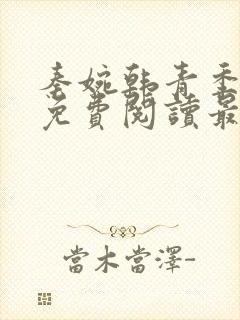 秦婉韓青垂
免費閱讀最
當木當澤-